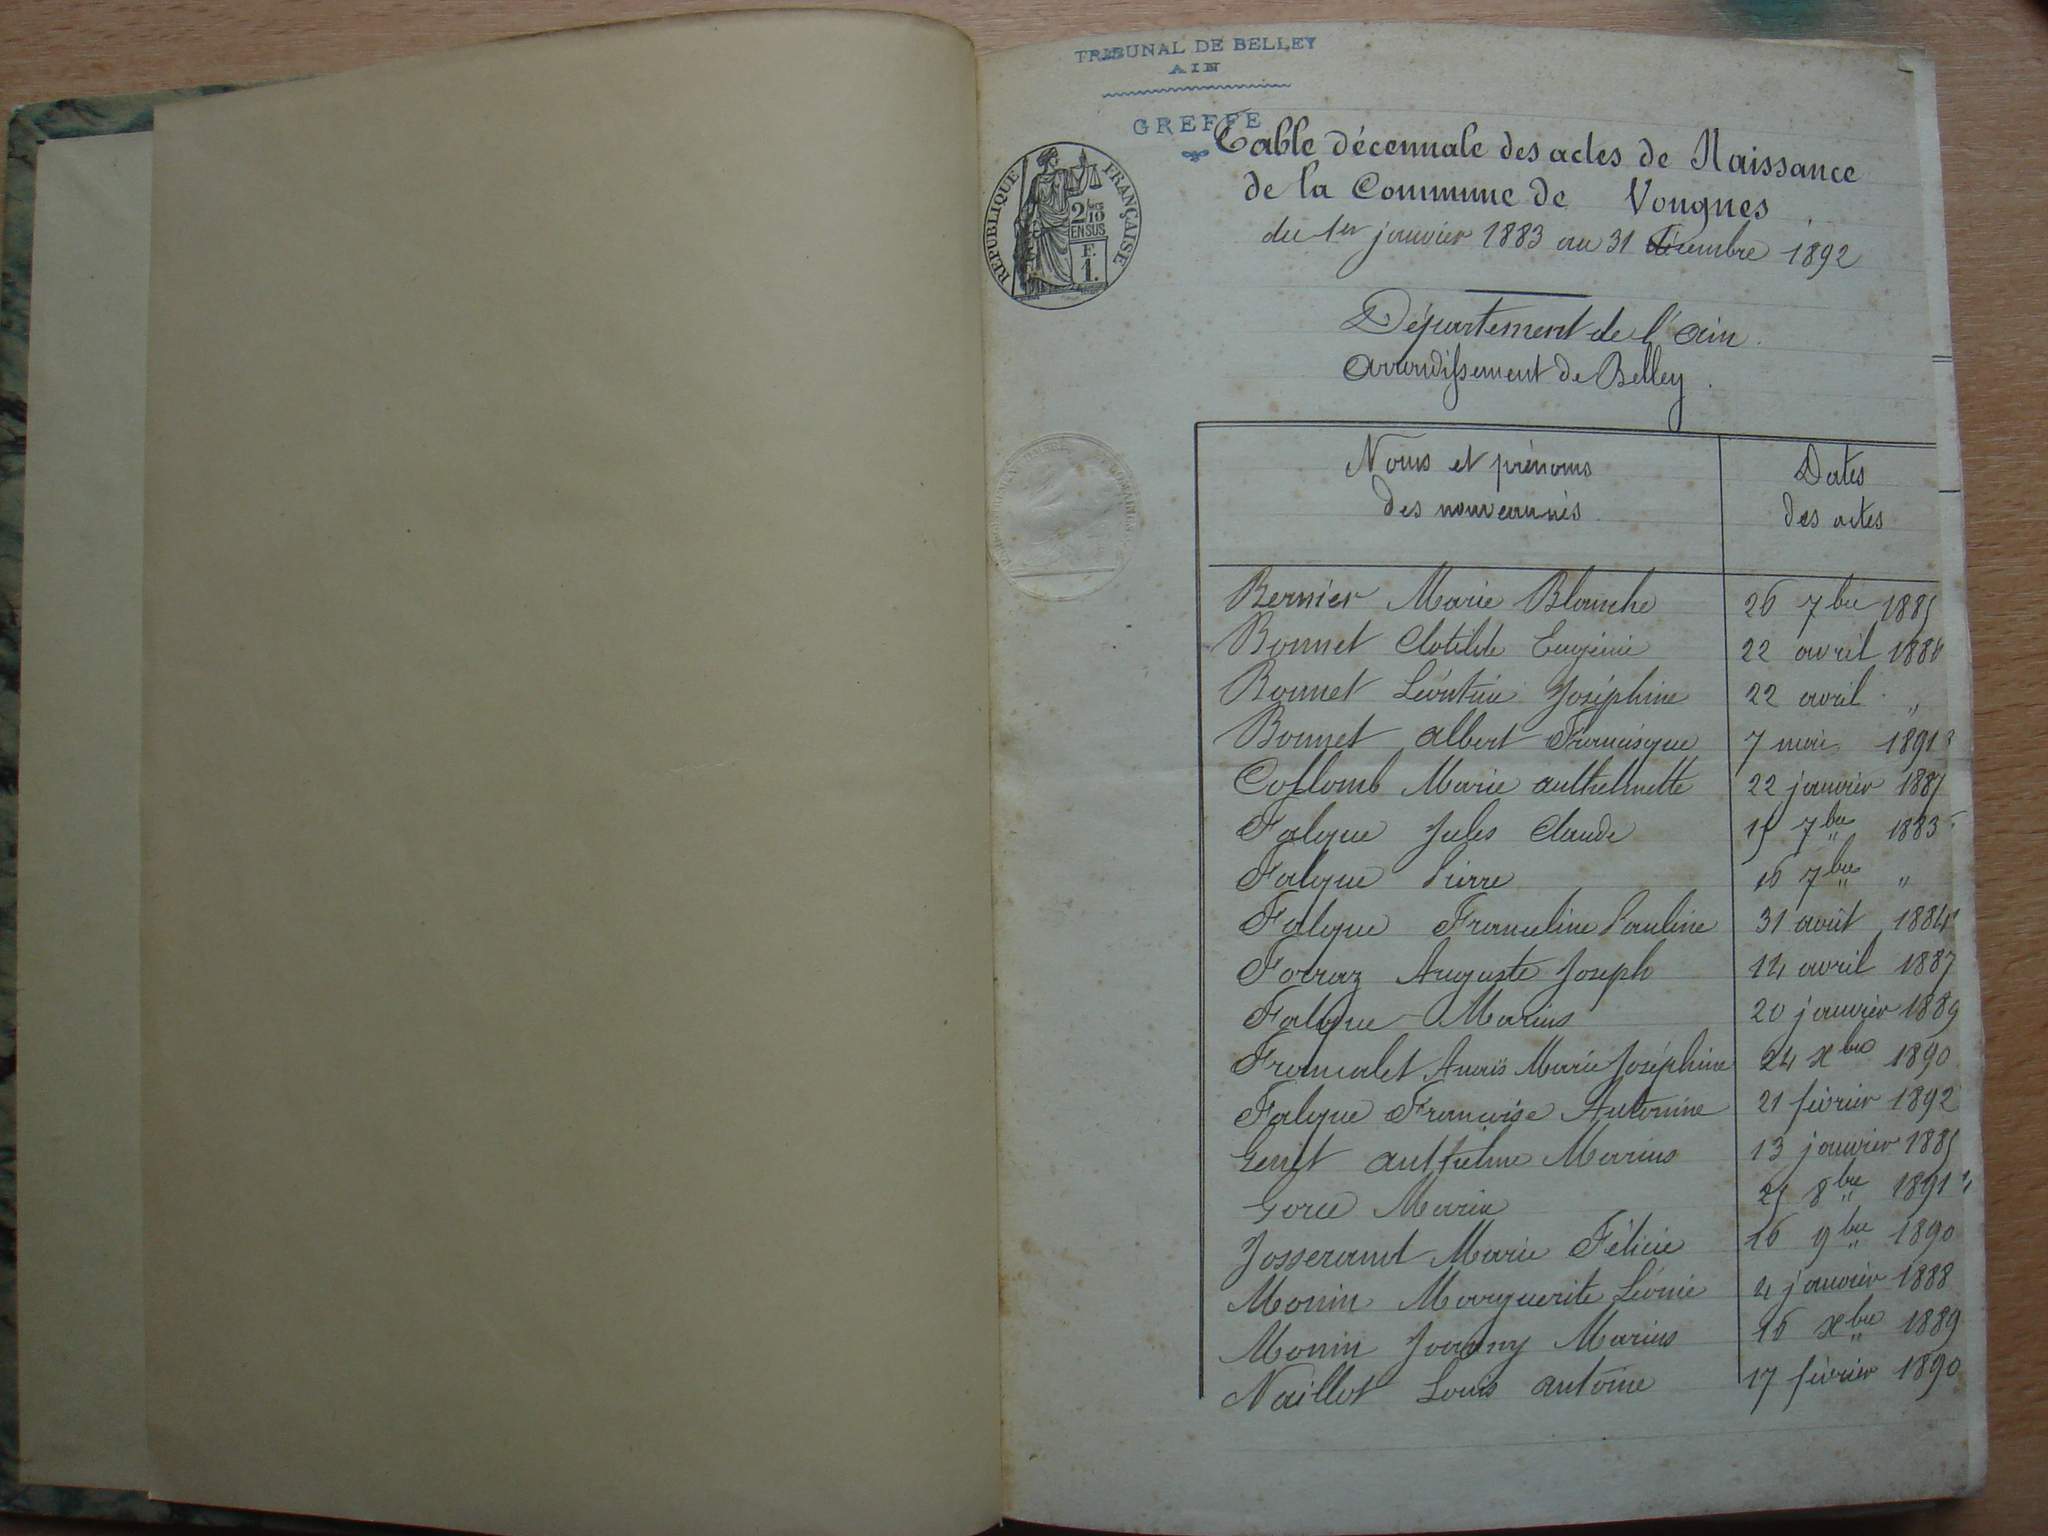 TRIBUNAL DE BELLEY
AIN
GREFFE
RÉPUBLIQUE FRANÇAISE
2/10
EN SUS
F.
1.
Table décennale des actes de Naissance
de la Commune de Vongnes
du 1er janvier 1883 au 31 décembre 1892
Département de l'Ain.
Arrondissement de Belley.
Noms et prénoms
des nouveaunés
Dates
des actes
Bernier Marie Blanche 26 7bre 1885
Bonnet Clotilde Eugénie 22 avril 1886
Bonnet Léontine Joséphine 22 avril "
Bonnet Albert Francisque 7 mai 1891
Collomb Marie Anthelmette 22 janvier 1887
Falque Jules Claude 15 7bre 1883
Falque Pierre 16 7bre "
Falque Franceline Pauline 31 août 1884
Forraz Auguste Joseph 14 avril 1887
Falque Marius 20 janvier 1889
Francalet Anaïs Marie Joséphine 24 xbre 1890
Falque Françoise Antonine 21 février 1892
Genet Anthelme Marius 13 janvier 1885
Gorce Maria 25 8bre 1891
Josserand Marie Félicie 16 9bre 1890
Monin Marguerite Léonie 4 janvier 1888
Monin Joanny Marius 16 xbre 1889
Naillot Louis Antoine 17 février 1890